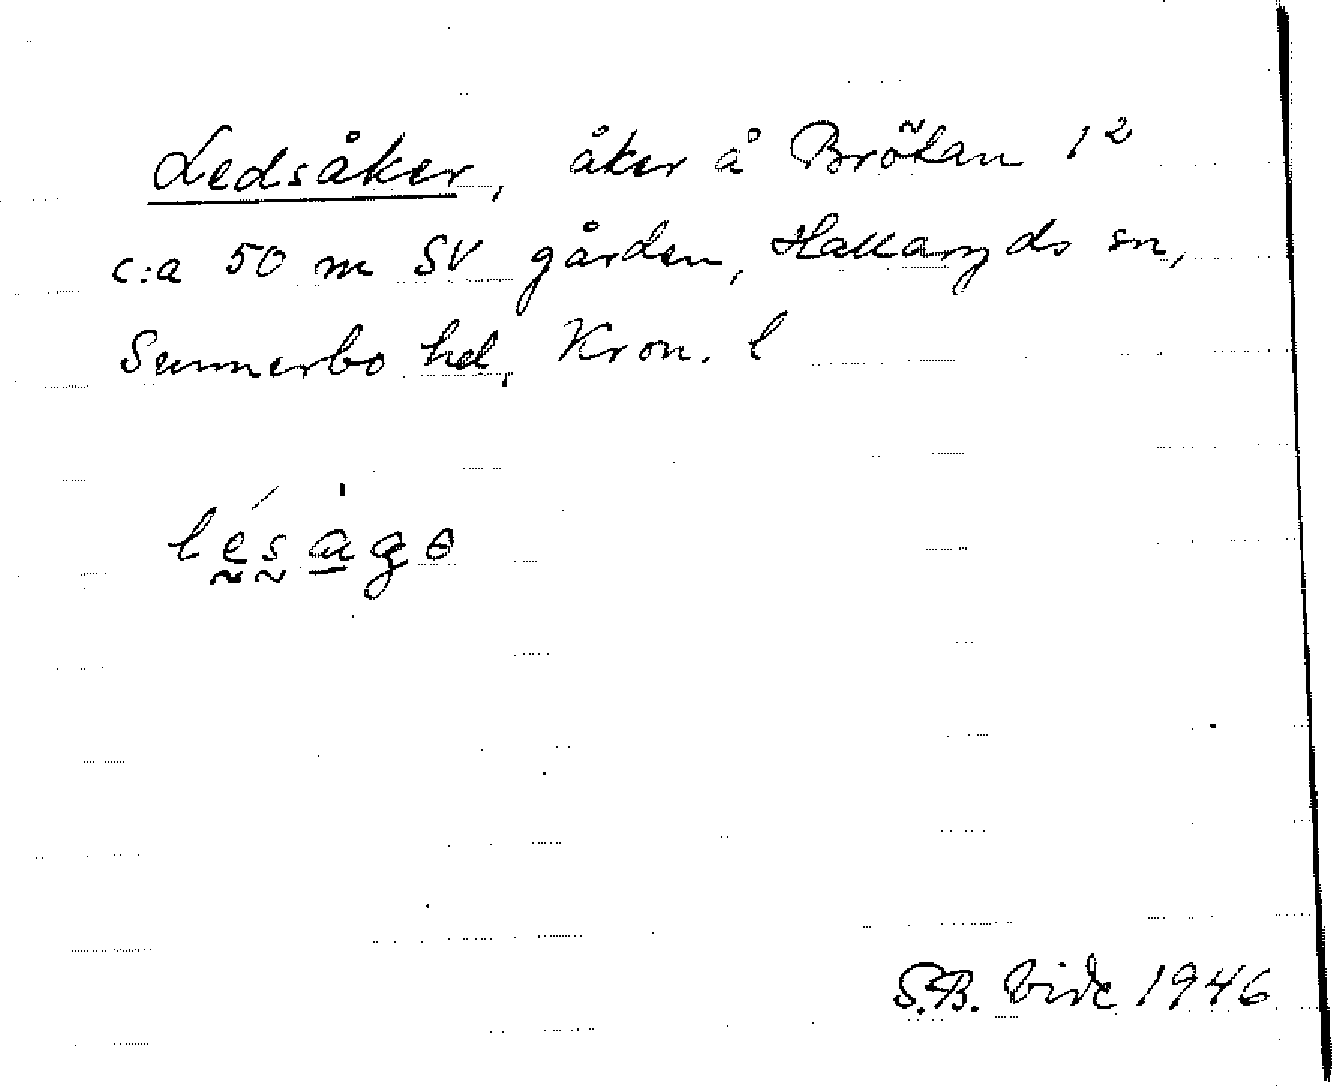 Ledsåker, åker å Brökan 1²
c:a 50 m SV gården, Hallaryds sn,
Sunnerbo hd, Kron. l
lésa̲gɵ
S.B. Vide 1946